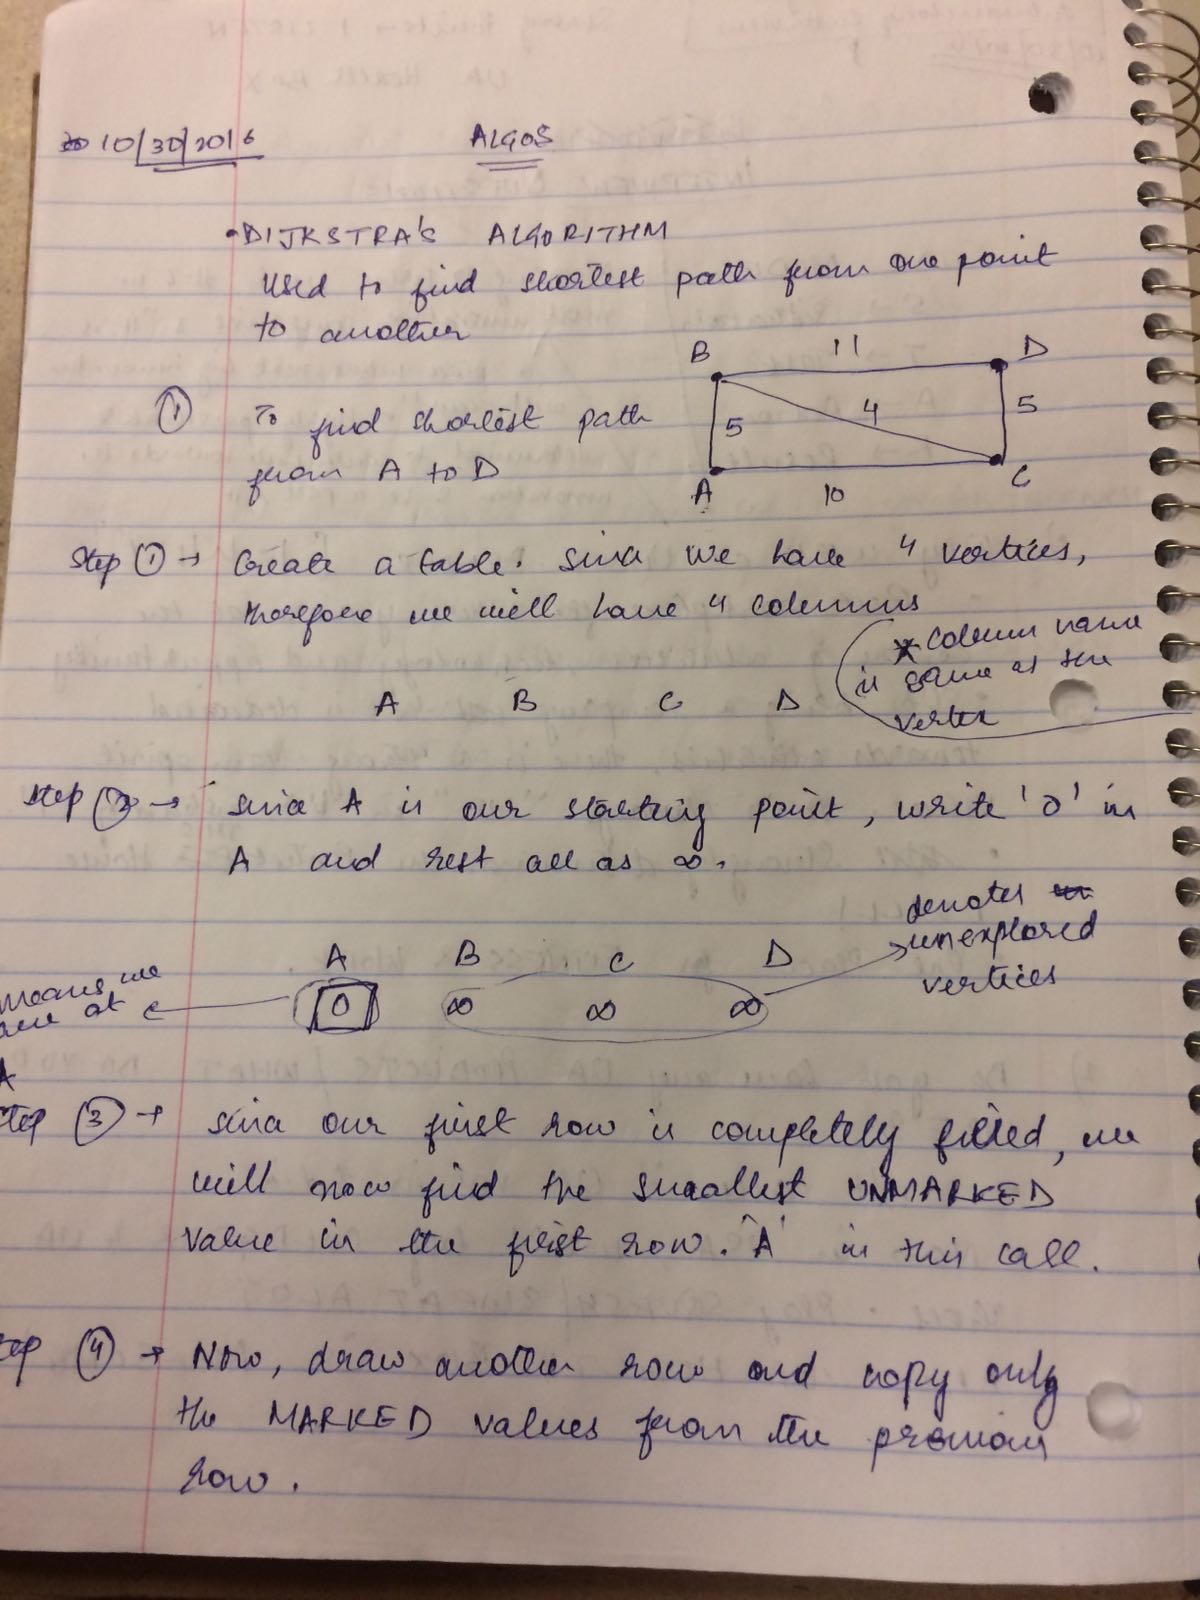 10/30/2016
ALGOS
• DIJKSTRA'S ALGORITHM
Used to find shortest path from one point
to another
B 11 D
① To find shortest path
5 4 5
from A to D
A 10 C
Step ① → Create a table. Since we have 4 vertices,
therefore we will have 4 columns
* Column name
is same as the
vertex
A B C D
Step ② → Since A is our starting point, write '0' in
A and rest all as ∞.
denotes
unexplored
vertices
A B C D
0 ∞ ∞ ∞
means we
are at
A
Step ③ → Since our first row is completely filled, we
will now find the smallest UNMARKED
value in the first row. 'A' in this case.
Step ④ → Now, draw another row and copy only
the MARKED values from the previous
row.